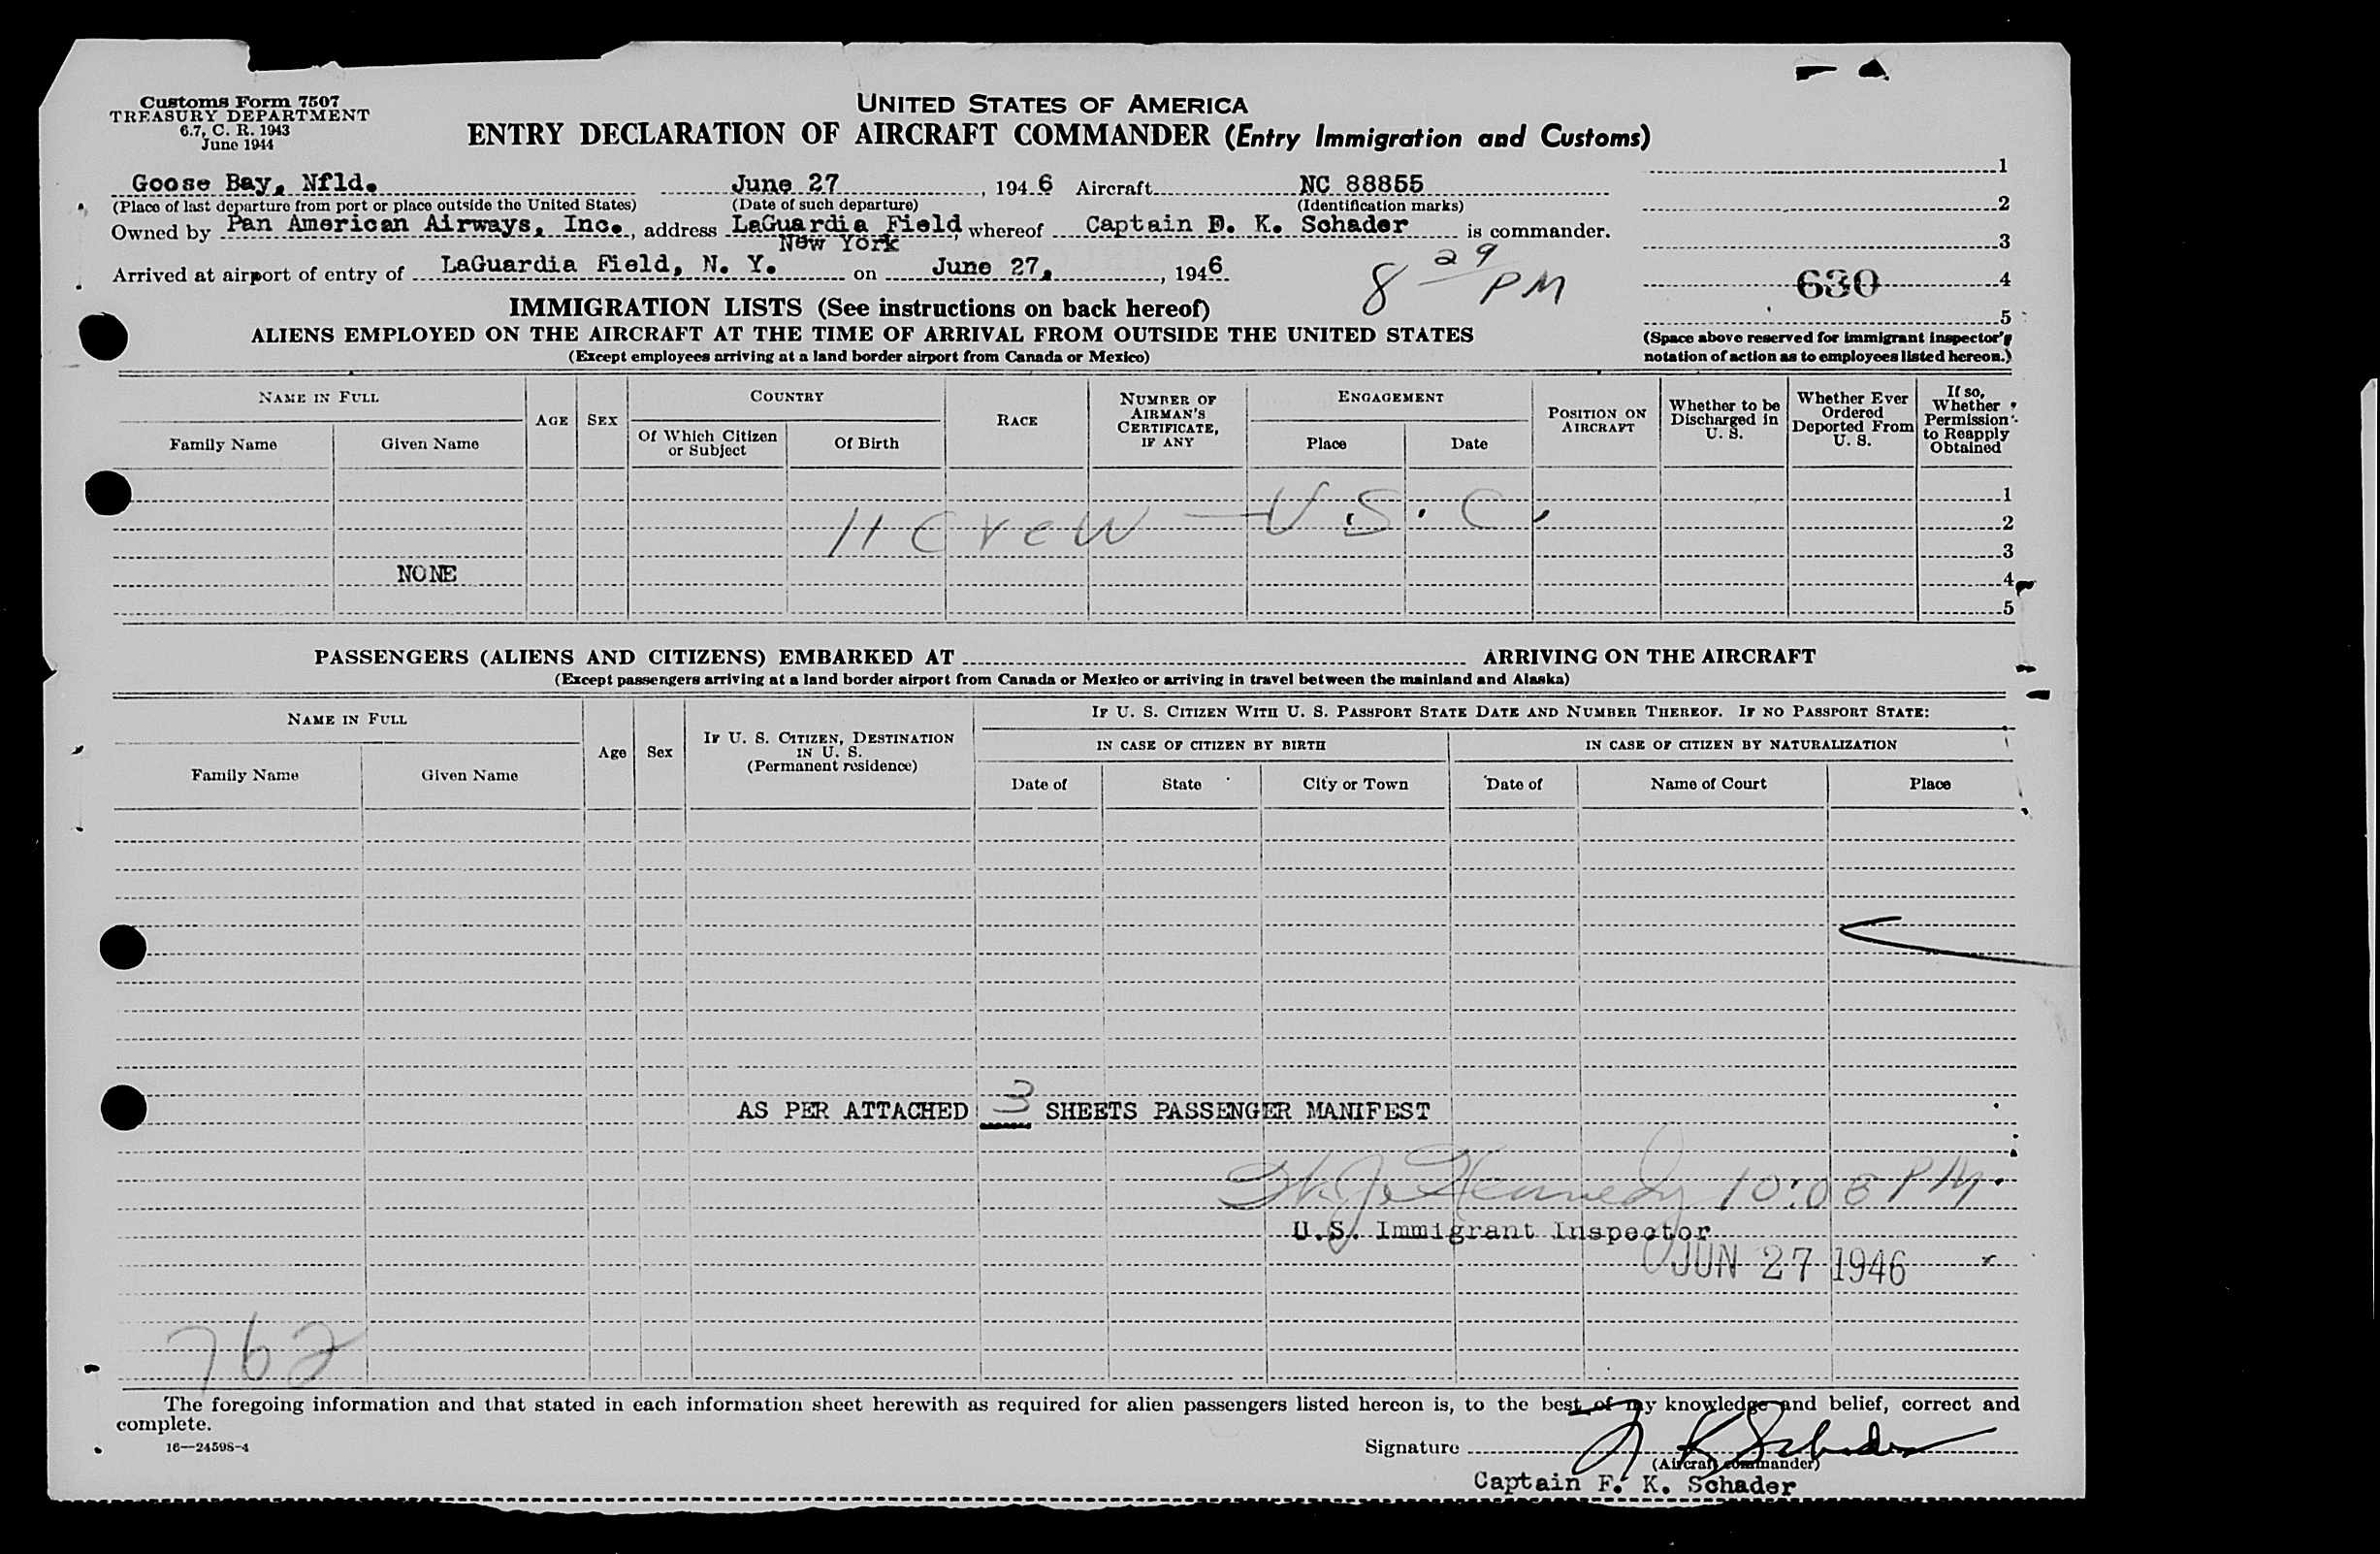 Customs Form 7507
TREASURY DEPARTMENT
6.7, C. R. 1943
June 1944
UNITED STATES OF AMERICA
ENTRY DECLARATION OF AIRCRAFT COMMANDER (Entry Immigration and Customs)
Goose Bay, Nfld. June 27, 1946 Aircraft NC 88855
(Place of last departure from port or place outside the United States) (Date of such departure) (Identification marks)
Owned by Pan American Airways, Inc., address LaGuardia Field, whereof Captain F. K. Schader is commander.
New York
Arrived at airport of entry of LaGuardia Field, N. Y. on June 27, 1946
8 29 PM
1
2
3
630 4
5
(Space above reserved for immigrant inspector's
notation of action as to employees listed hereon.)
IMMIGRATION LISTS (See instructions on back hereof)
ALIENS EMPLOYED ON THE AIRCRAFT AT THE TIME OF ARRIVAL FROM OUTSIDE THE UNITED STATES
(Except employees arriving at a land border airport from Canada or Mexico)
NAME IN FULL
Family Name
Given Name
AGE
SEX
COUNTRY
Of Which Citizen
or Subject
Of Birth
RACE
NUMBER OF
AIRMAN'S
CERTIFICATE,
IF ANY
ENGAGEMENT
Place
Date
POSITION ON
AIRCRAFT
Whether to be
Discharged in
U. S.
Whether Ever
Ordered
Deported From
U. S.
If so,
Whether
Permission
to Reapply
Obtained
1
11 Crew — U.S.C. 2
3
NONE 4
5
PASSENGERS (ALIENS AND CITIZENS) EMBARKED AT ARRIVING ON THE AIRCRAFT
(Except passengers arriving at a land border airport from Canada or Mexico or arriving in travel between the mainland and Alaska)
NAME IN FULL
Family Name
Given Name
Age
Sex
IF U. S. CITIZEN, DESTINATION
IN U. S.
(Permanent residence)
IF U. S. CITIZEN WITH U. S. PASSPORT STATE DATE AND NUMBER THEREOF. IF NO PASSPORT STATE:
IN CASE OF CITIZEN BY BIRTH
Date of
State
City or Town
IN CASE OF CITIZEN BY NATURALIZATION
Date of
Name of Court
Place
AS PER ATTACHED 3 SHEETS PASSENGER MANIFEST
Kennedy 10:08 PM.
U.S. Immigrant Inspector
JUN 27 1946
762
The foregoing information and that stated in each information sheet herewith as required for alien passengers listed hereon is, to the best of my knowledge and belief, correct and
complete.
16—24598-4
Signature F K Schader
(Aircraft commander)
Captain F. K. Schader